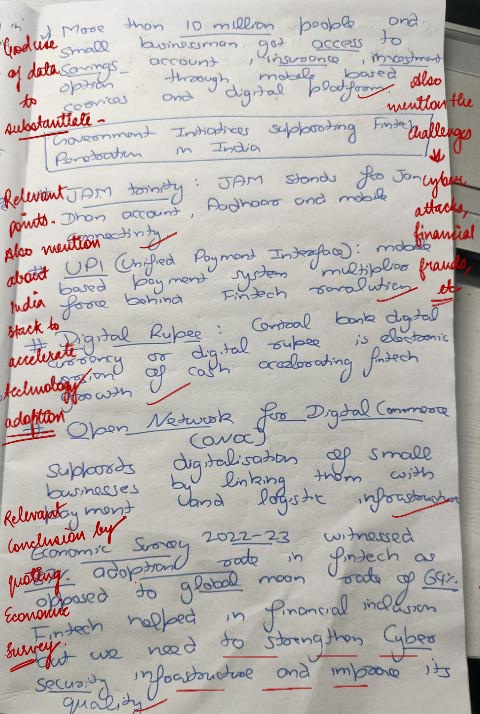 More than 10 million people and
small businessman got access to
savings account, insurance, investment
option through mobile based
services and digital platform
Good use
of data
to
substantiate.
Also
mention the
challenges
↓
cyber
attacks,
financial
frauds,
etc
Government Initiatives supporting Fintech
Penetration in India
JAM trinity: JAM stands for Jan
Dhan account, Aadhaar and mobile
connectivity
Relevant
points.
Also mention
about
India
stack to
accelerate
technology
adoption
UPI (Unified Payment Interface): mobile
based payment system multiplier
force behind Fintech revolution
# Digital Rupee: Central bank digital
currency or digital rupee is electronic
version of cash accelerating fintech
growth
# Open Network for Digital Commerce
(ONDC)
Supports digitalisation of small
businesses by linking them with
payment and logistic infrastructure
Relevant
conclusion by
quoting
Economic
Survey
Economic Survey 2022-23 witnessed
adoption rate in fintech as
opposed to global mean rate of 64%.
Fintech helped in financial inclusion
but we need to strengthen Cyber
security infrastructure and improve its
quality